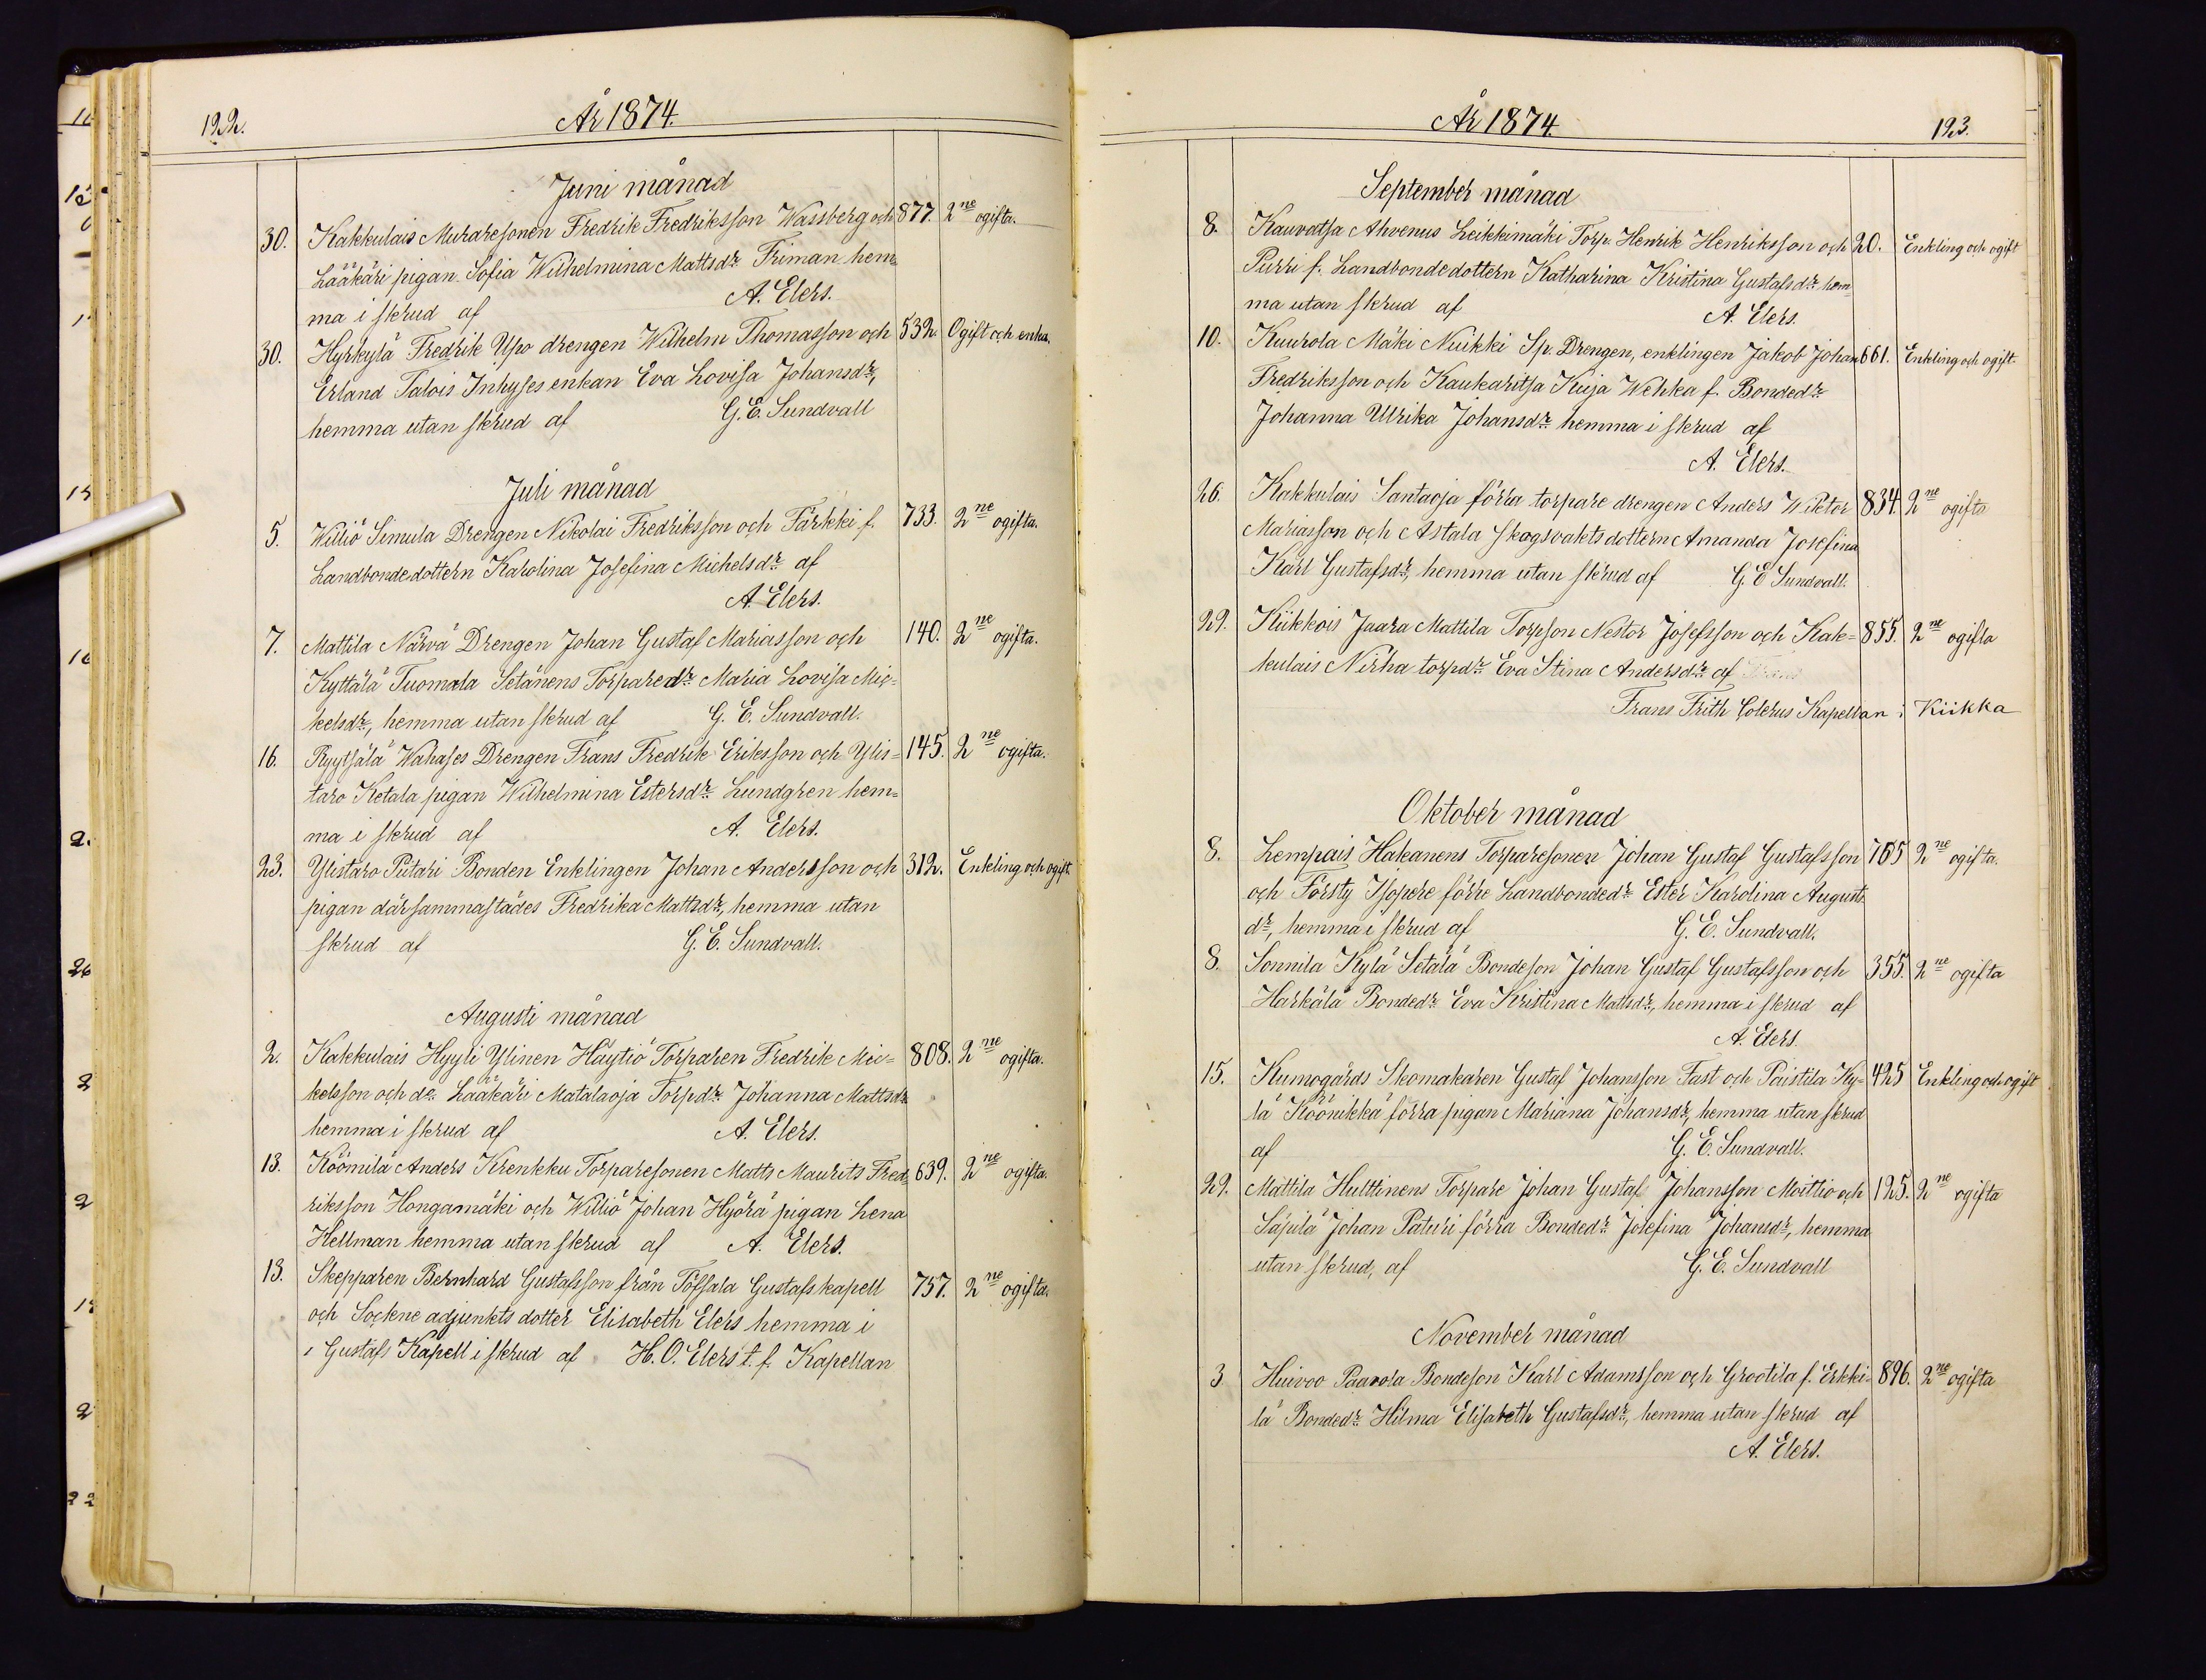 122.
År 1874.
Juni månad
30. Kakkulais Muraresonen Fredrik Fredriksson Wassberg och 877. 2ne ogifta.
Lääkäri pigan Sofia Wilhelmina Mattsdr Friman hem=
ma i skrud af A. Elers.
30. Hyrkylä Fredrik Upo drengen Wilhelm Thomasson och 532. Ogift och enka.
Erland Talois Inhyses enkan Eva Lovisa Johansdr,
hemma utan skrud af G. E. Sundvall
Juli månad
5. Williö Simula Drengen Nikolai Fredriksson och Färkki f. 733. 2ne ogifta.
Landbondedottern Karolina Josefina Michelsdr af
A. Elers.
7. Mattila Närvä Drengen Johan Gustaf Mariasson och 140. 2ne ogifta.
Kyttälä Tuomala Setänens Torparedr Maria Lovisa Mic=
kelsdr, hemma utan skrud af G. E. Sundvall.
16. Ryytsälä Wahases Drengen Frans Fredrik Eriksson och Ylis= 145. 2ne ogifta.
taro Ketala pigan Wilhelmina Estersdr Lundgren hem=
ma i skrud af A. Elers.
23. Ylistaro Pitari Bonden Enklingen Johan Andersson och 312. Enkling och ogift.
pigan därsammastädes Fredrika Mattsdr, hemma utan
skrud af G. E. Sundvall.
Augusti månad
2. Kakkulais Hyyli Ylinen Häytiö Torparen Fredrik Mic= 808. 2ne ogifta.
kelsson och do Lääkäri Matalaoja Torpdr Johanna Mattsdr
hemma i skrud af A. Elers.
13. Köömilä Anders Krenkku Torparesonen Matts Maurits Fred= 639. 2ne ogifta.
riksson Hongamäki och Williö Johan Hyörä pigan Lena
Hellman hemma utan skrud af A. Elers.
13. Skepparen Bernhard Gustafsson från Töfsala Gustafs kapell 757. 2ne ogifta.
och Sockne adjunkts dotter Elisabeth Elers hemma i
i Gustafs Kapell i skrud af H. O. Elers t. f. Kapellan
År 1874
123.
September månad
8. Kauvatsa Ahvenus Leikkimäki Torp. Henrik Henriksson och 20. Enkling och ogift
Purri f. Landbondedottern Katharina Kristina Gustafsdr hem=
ma utan skrud af A. Elers.
10. Kuurola Mäki Nuikki Sp. Drengen, enklingen Jakob Johan 661. Enkling och ogift
Fredriksson och Kaukaritsa Kuja Wehka f. Bondedr
Johanna Ulrika Johansdr hemma i skrud af
A. Elers.
26. Kakkulais Santaoja förra torpare drengen Anders Wiktor 834. 2ne ogifta
Mariasson och Astala skogsvaktsdottern Amanda Josefina
Karl Gustafsdr, hemma utan skrud af G. E. Sundvall.
29. Kiikkois Jaara Mattila Torpson Nestor Josefsson och Kak= 855. 2ne ogifta
kulais Nirha torpdr Eva Stina Andersdr af
Frans Frith Colerus Kapellan i Kiikka
Oktober månad
8. Lempais Hakanens Torparesonen Johan Gustaf Gustafsson 765 2ne ogifta.
och Forsty Isopere förre Landbondedr Ester Karolina August
dr, hemma i skrud af G. E. Sundvall.
8. Sonnila Kylä Setälä Bondeson Johan Gustaf Gustafsson och 355. 2ne ogifta
Harkälä Bondedr Eva Kristina Mattsdr, hemma i skrud af
A. Elers.
15. Kumogårds Skomakaren Gustaf Johansson Fast och Paistila Ky= 425 Enkling och ogift
lä Köönikkä förra pigan Mariana Johansdr, hemma utan skrud
af G. E. Sundvall.
29. Mattila Hulttinens Torpare Johan Gustaf Johansson Moittio och 125. 2ne ogifta
Säpilä Johan Paturi förra Bondedr Josefina Johansdr, hemma
utan skrud, af G. E. Sundvall
November månad
3 Huivoo Paavola Bondeson Karl Adamsson och Grootila f. Erkki= 896. 2ne ogifta
lä Bondedr Hilma Elisabeth Gustafsdr, hemma utan skrud af
A. Elers.